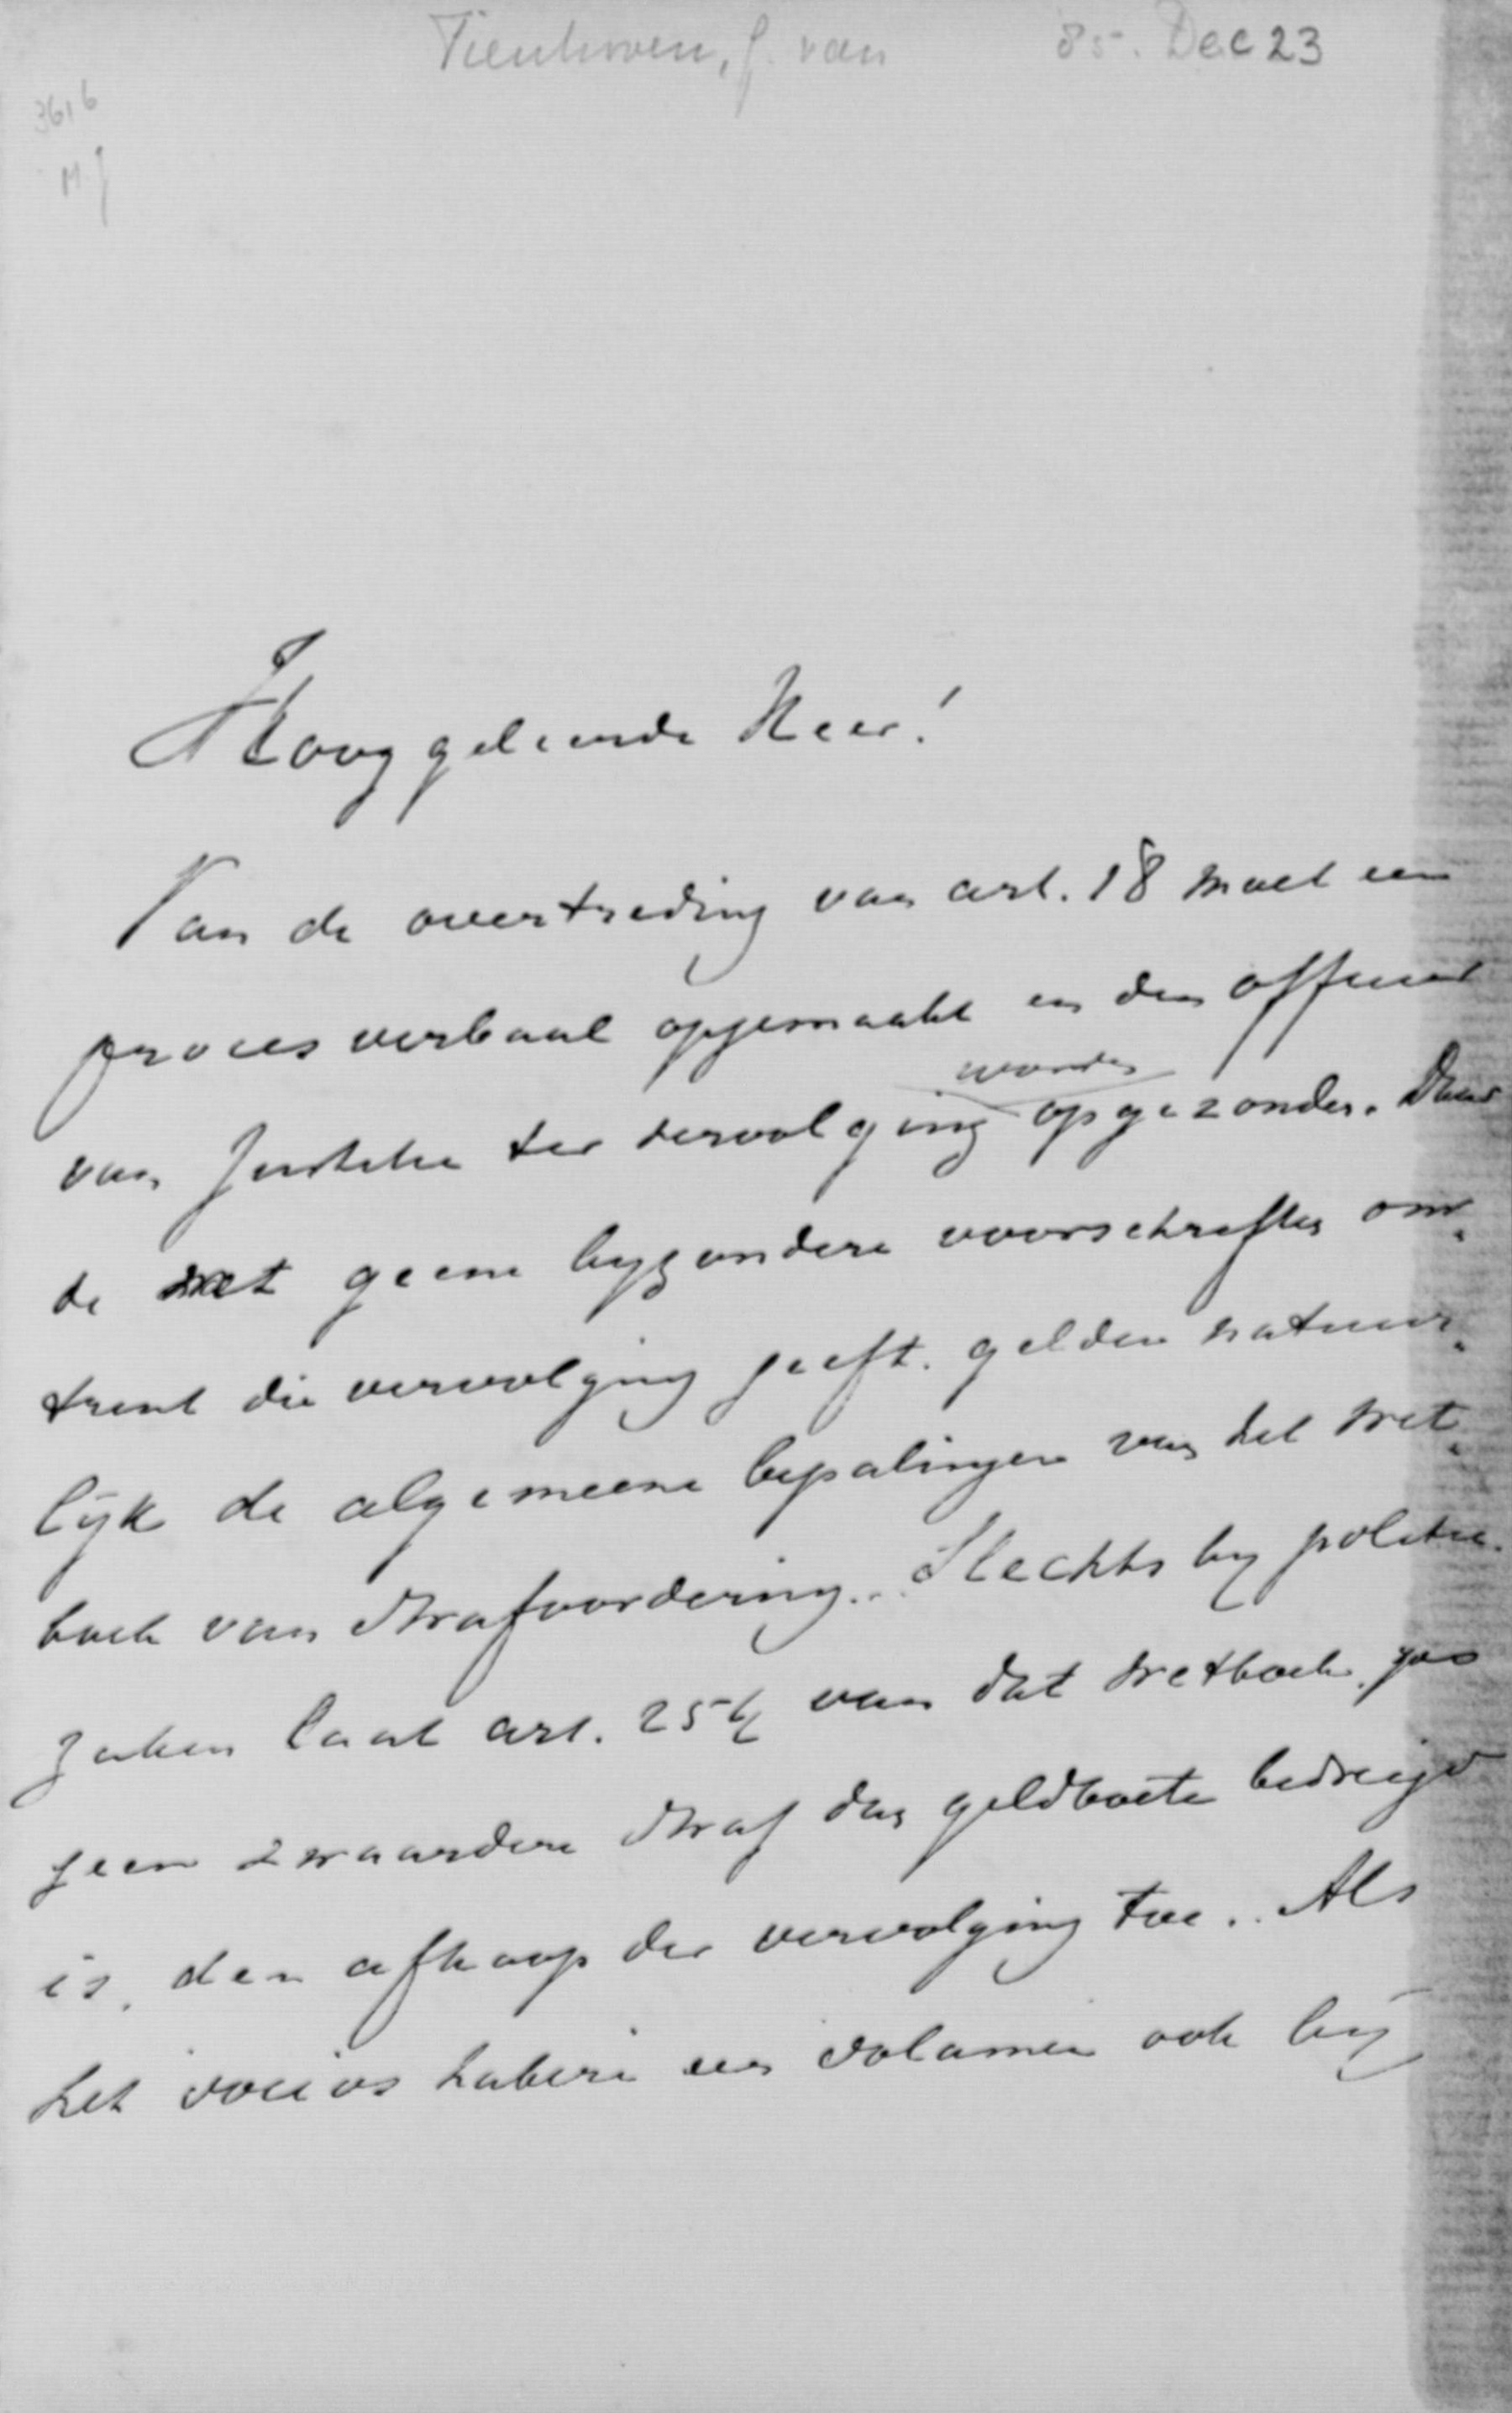 Tienhoven, G. van 85. Dec 23
3616
M
Hooggeleerde Heer!
Van de overtreding van art. 18 moet een
proces verbaal opgemaakt en den officier
worden
van Justitie ter vervolging opgezonden. Daar
de wet geene byzondere voorschriften om„
trent die vervolging geeft. gelden natuur„
lijk de algemeene bepalingen van het Wet„
boek van Strafvordering... Slechts by politie„
zaken laat art. 254 van dat wetboek,
geen zwaardere straf dan geldboete bedreigd
is, den afkoop der vervolging toe.. Als
het socios habere een solamen ook bij